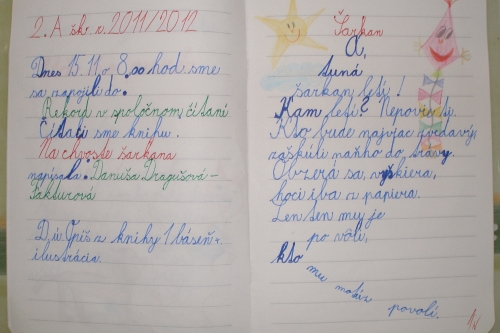 2. A šk. r. 2011/2012
Dnes 15.11. o 8.00 hod. sme
sa zapojili do.
Rekord v spoločnom čítaní
Čítali sme knihu.
Na chvoste šarkana
napísala. Danuša Dragulová-
Faktorová
D.ú Opíš z knihy 1 báseň +
ilustrácia.
Šarkan
A,
tuná
šarkan letí!
Kam letí? Nepovie ti.
Kto bude najviac zvedavý,
zaškúli naňho do trávy.
Obzerá sa, vyškiera,
hoci iba z papiera.
Len ten mu je
po vôli,
kto
mu motúz
povolí.